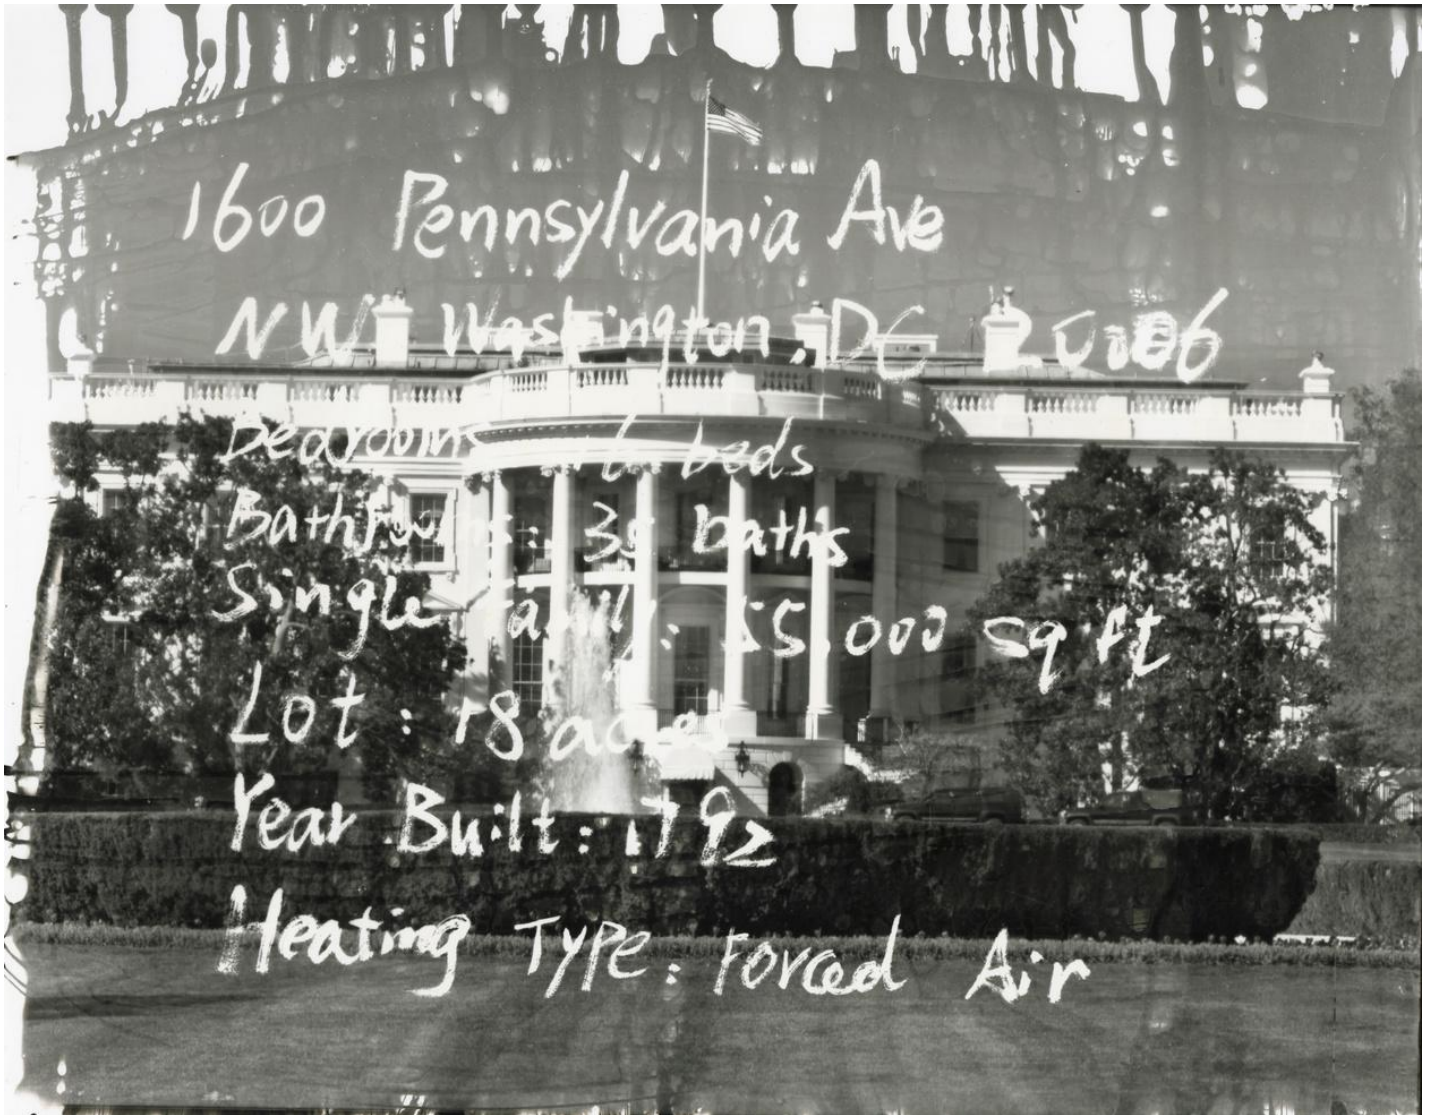 1600 Pennsylvania Ave
NW Washington, DC
Bedrooms beds
Bathrooms: 35 baths
Single Family: 55,000 sq ft
Lot: 18 acres
Year Built: 1792
Heating Type: Forced Air